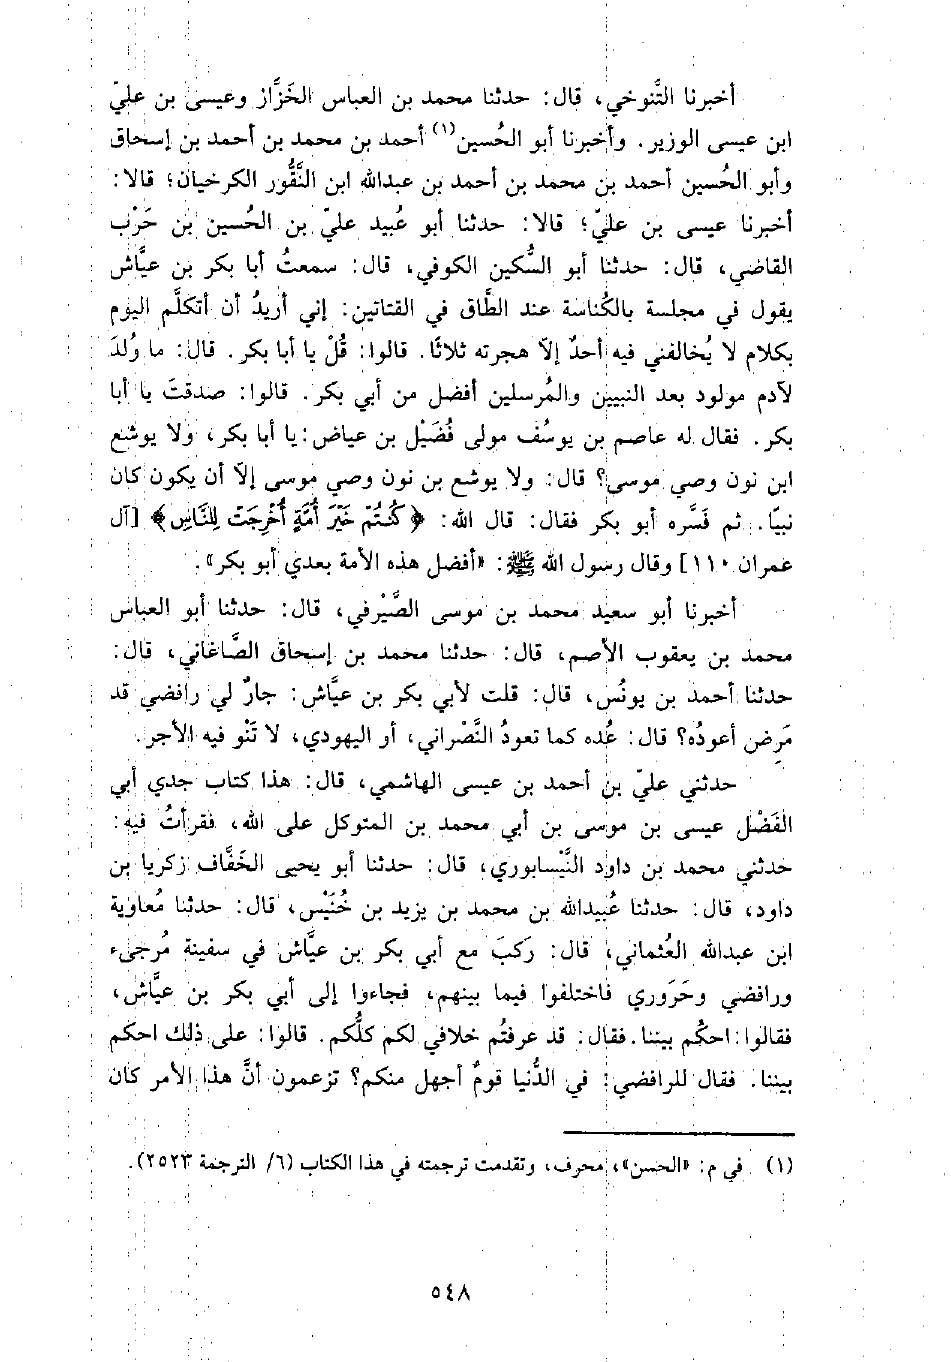 أخبرنا التَّنوخي، قال: حدثنا محمد بن العباس الخَزَّاز وعيسى بن عليّ
ابن عيسى الوزير. وأخبرنا أبو الحُسين(١) أحمد بن محمد بن أحمد بن إسحاق
وأبو الحُسين أحمد بن محمد بن أحمد بن عبدالله ابن النَّقُّور الكرخيان؛ قالا:
أخبرنا عيسى بن عليّ؛ قالا: حدثنا أبو عُبيد عليّ بن الحُسين بن حَرْب
القاضي، قال: حدثنا أبو السُّكين الكوفي، قال: سمعتُ أبا بكر بن عيَّاش
يقول في مجلسة بالكُناسة عند الطَّاق في القتاتين: إني أريدُ أن أتكلَّم اليوم
بكلام لا يُخالفني فيه أحدٌ إلاّ هجرته ثلاثًا. قالوا: قُلْ يا أبا بكر. قال: ما وُلدَ
لآدم مولود بعد النبيين والمُرسلين أفضل من أبي بكر. قالوا: صدقتَ يا أبا
بكر. فقال له عاصم بن يوسُف مولى فُضَيْل بن عياض: يا أبا بكر، ولا يوشع
ابن نون وصي موسى؟ قال: ولا يوشع بن نون وصي موسى إلاّ أن يكون كان
نبيًا. ثم فَسَّره أبو بكر فقال: قال الله: ﴿كُنتُمْ خَيْرَ أُمَّةٍ أُخْرِجَتْ لِلنَّاسِ﴾ [آل
عمران ١١٠] وقال رسول الله ﷺ: «أفضل هذه الأمة بعدي أبو بكر».
أخبرنا أبو سعيد محمد بن موسى الصَّيْرفي، قال: حدثنا أبو العباس
محمد بن يعقوب الأصم، قال: حدثنا محمد بن إسحاق الصَّاغاني، قال:
حدثنا أحمد بن يونُس، قال: قلت لأبي بكر بن عيَّاش: جارٌ لي رافضي قد
مَرِض أعودُه؟ قال: عُده كما تعودُ النَّصْراني، أر اليهودي، لا تَنْو فيه الأجر.
حدثني عليّ بن أحمد بن عيسى الهاشمي، قال: هذا كتاب جدي أبي
الفَضْل عيسى بن موسى بن أبي محمد بن المتوكل على الله، فقرأتُ فيه:
حدثني محمد بن داود النَّيْسابوري، قال: حدثنا أبو يحيى الخَفَّاف زكريا بن
داود، قال: حدثنا عُبيدالله بن محمد بن يزيد بن خُنَيْس، قال: حدثنا مُعاوية
ابن عبدالله العُثماني، قال: رَكبَ مع أبي بكر بن عيَّاش في سفينة مُرجىء
ورافضي وحَروري فاختلفوا فيما بينهم، فجاءوا إلى أبي بكر بن عيَّاش،
فقالوا: احكُم بيننا. فقال: قد عرفتُم خلافي لكم كلُّكم. قالوا: على ذلك احكم
بيننا. فقال للرافضي: في الدُّنيا قومٌ أجهل منكم؟ تزعمون أنَّ هذا الأمر كان
(١) في م: «الحسن»، محرف، وتقدمت ترجمته في هذا الكتاب (٦/ الترجمة ٢٥٢٣).
٥٤٨